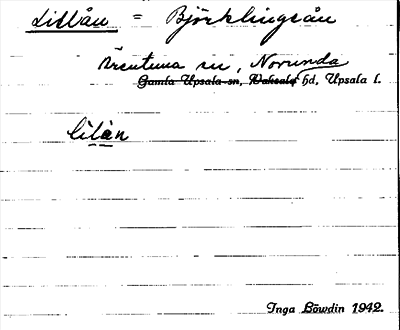 Lillån = Björklingeån
Ärentuna sn, Norunda
Gamla Upsala sn, Vaksala hd, Upsala l.
lilån
Inga Löwdin 1942.